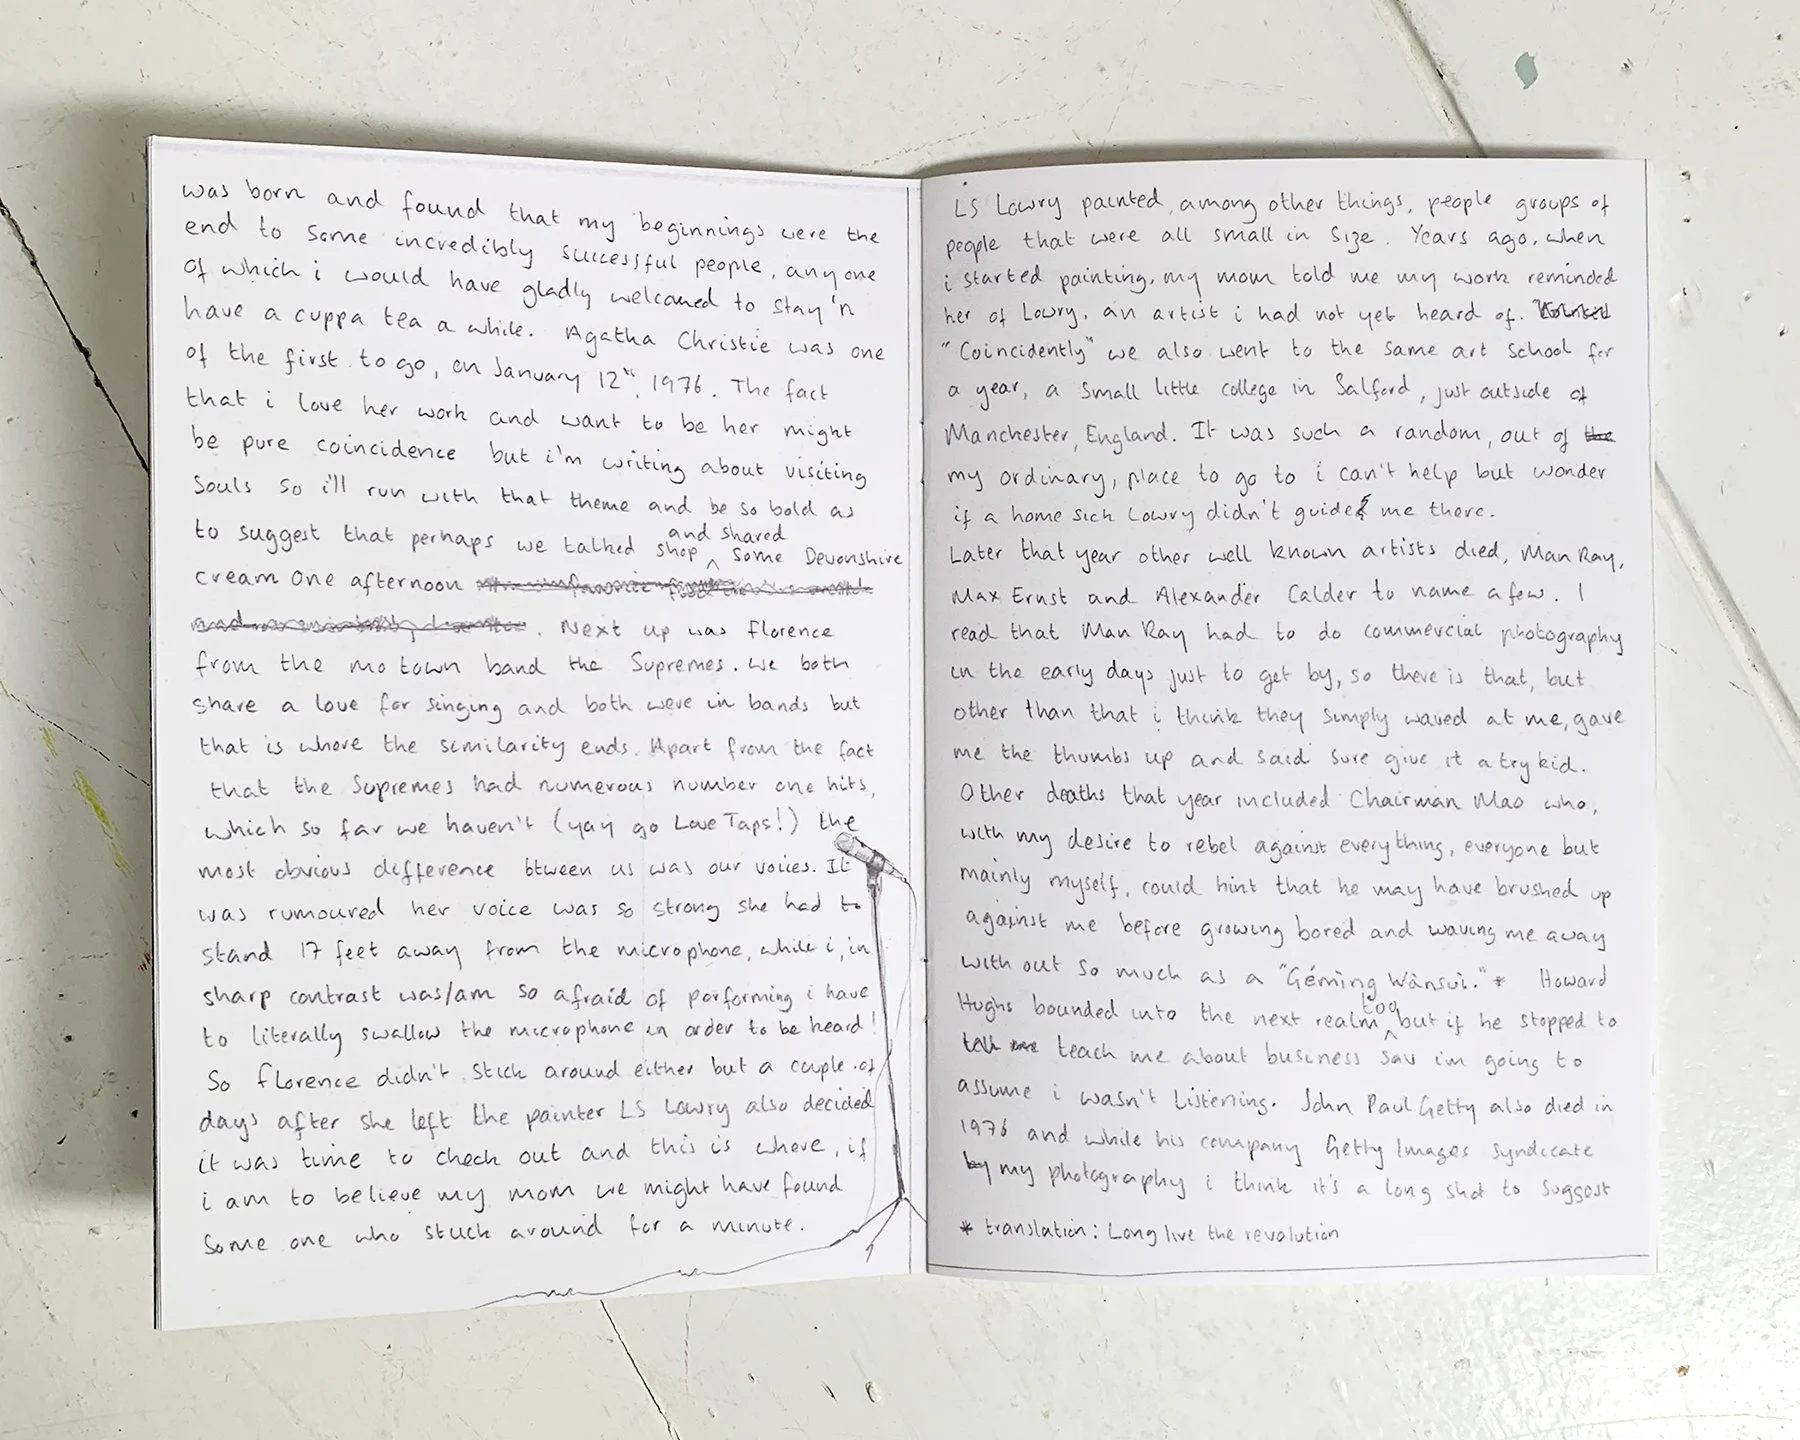 was born and found that my beginnings were the
end to some incredibly successful people, anyone
of which i would have gladly welcomed to stay 'n
have a cuppa tea a while. Agatha Christie was one
of the first to go, on January 12th, 1976. The fact
that i love her work and want to be her might
be pure coincidence but i'm writing about visiting
souls so i'll run with that theme and be so bold as
to suggest that perhaps we talked shop and shared some Devonshire
cream one afternoon
. Next up was florence
from the mo town band the Supremes. We both
share a love for singing and both were in bands but
that is where the similarity ends. Apart from the fact
that the Supremes had numerous number one hits,
which so far we haven't (yay go Love Taps!) the
most obvious difference btween us was our voices. It
was rumoured her voice was so strong she had to
stand 17 feet away from the microphone, while i, in
sharp contrast was/am so afraid of performing i have
to literally swallow the microphone in order to be heard!
So florence didn't stick around either but a couple of
days after she left the painter LS Lowry also decided
it was time to check out and this is where, if
i am to believe my mom we might have found
some one who stuck around for a minute.
LS Lowry painted, among other things, people groups of
people that were all small in size. Years ago, when
i started painting, my mom told me my work reminded
her of Lowry, an artist i had not yet heard of.
"Coincidently" we also went to the same art school for
a year, a small little college in Salford, just outside of
Manchester, England. It was such a random, out of the
my ordinary, place to go to i can't help but wonder
if a home sick Lowry didn't guide me there.
Later that year other well known artists died, Man Ray,
Max Ernst and Alexander Calder to name a few. I
read that Man Ray had to do commercial photography
in the early days just to get by, so there is that, but
other than that i think they simply waved at me, gave
me the thumbs up and said sure give it a try kid.
Other deaths that year included Chairman Mao who,
with my desire to rebel against everything, everyone but
mainly myself, could hint that he may have brushed up
against me before growing bored and waving me away
with out so much as a "Géming Wànsuì." * Howard
Hughs bounded into the next realm too but if he stopped to
tell me teach me about business sav i'm going to
assume i wasn't listening. John Paul Getty also died in
1976 and while his company Getty Images syndicate
by my photography i think it's a long shot to suggest
* translation: Long live the revolution